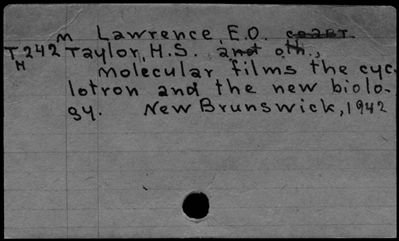 M Lawrence, E.O.
T242 Taylor, H.S. and oth.,
H Molecular films the cyc-
lotron and the new biolo-
gy. New Brunswick, 1942